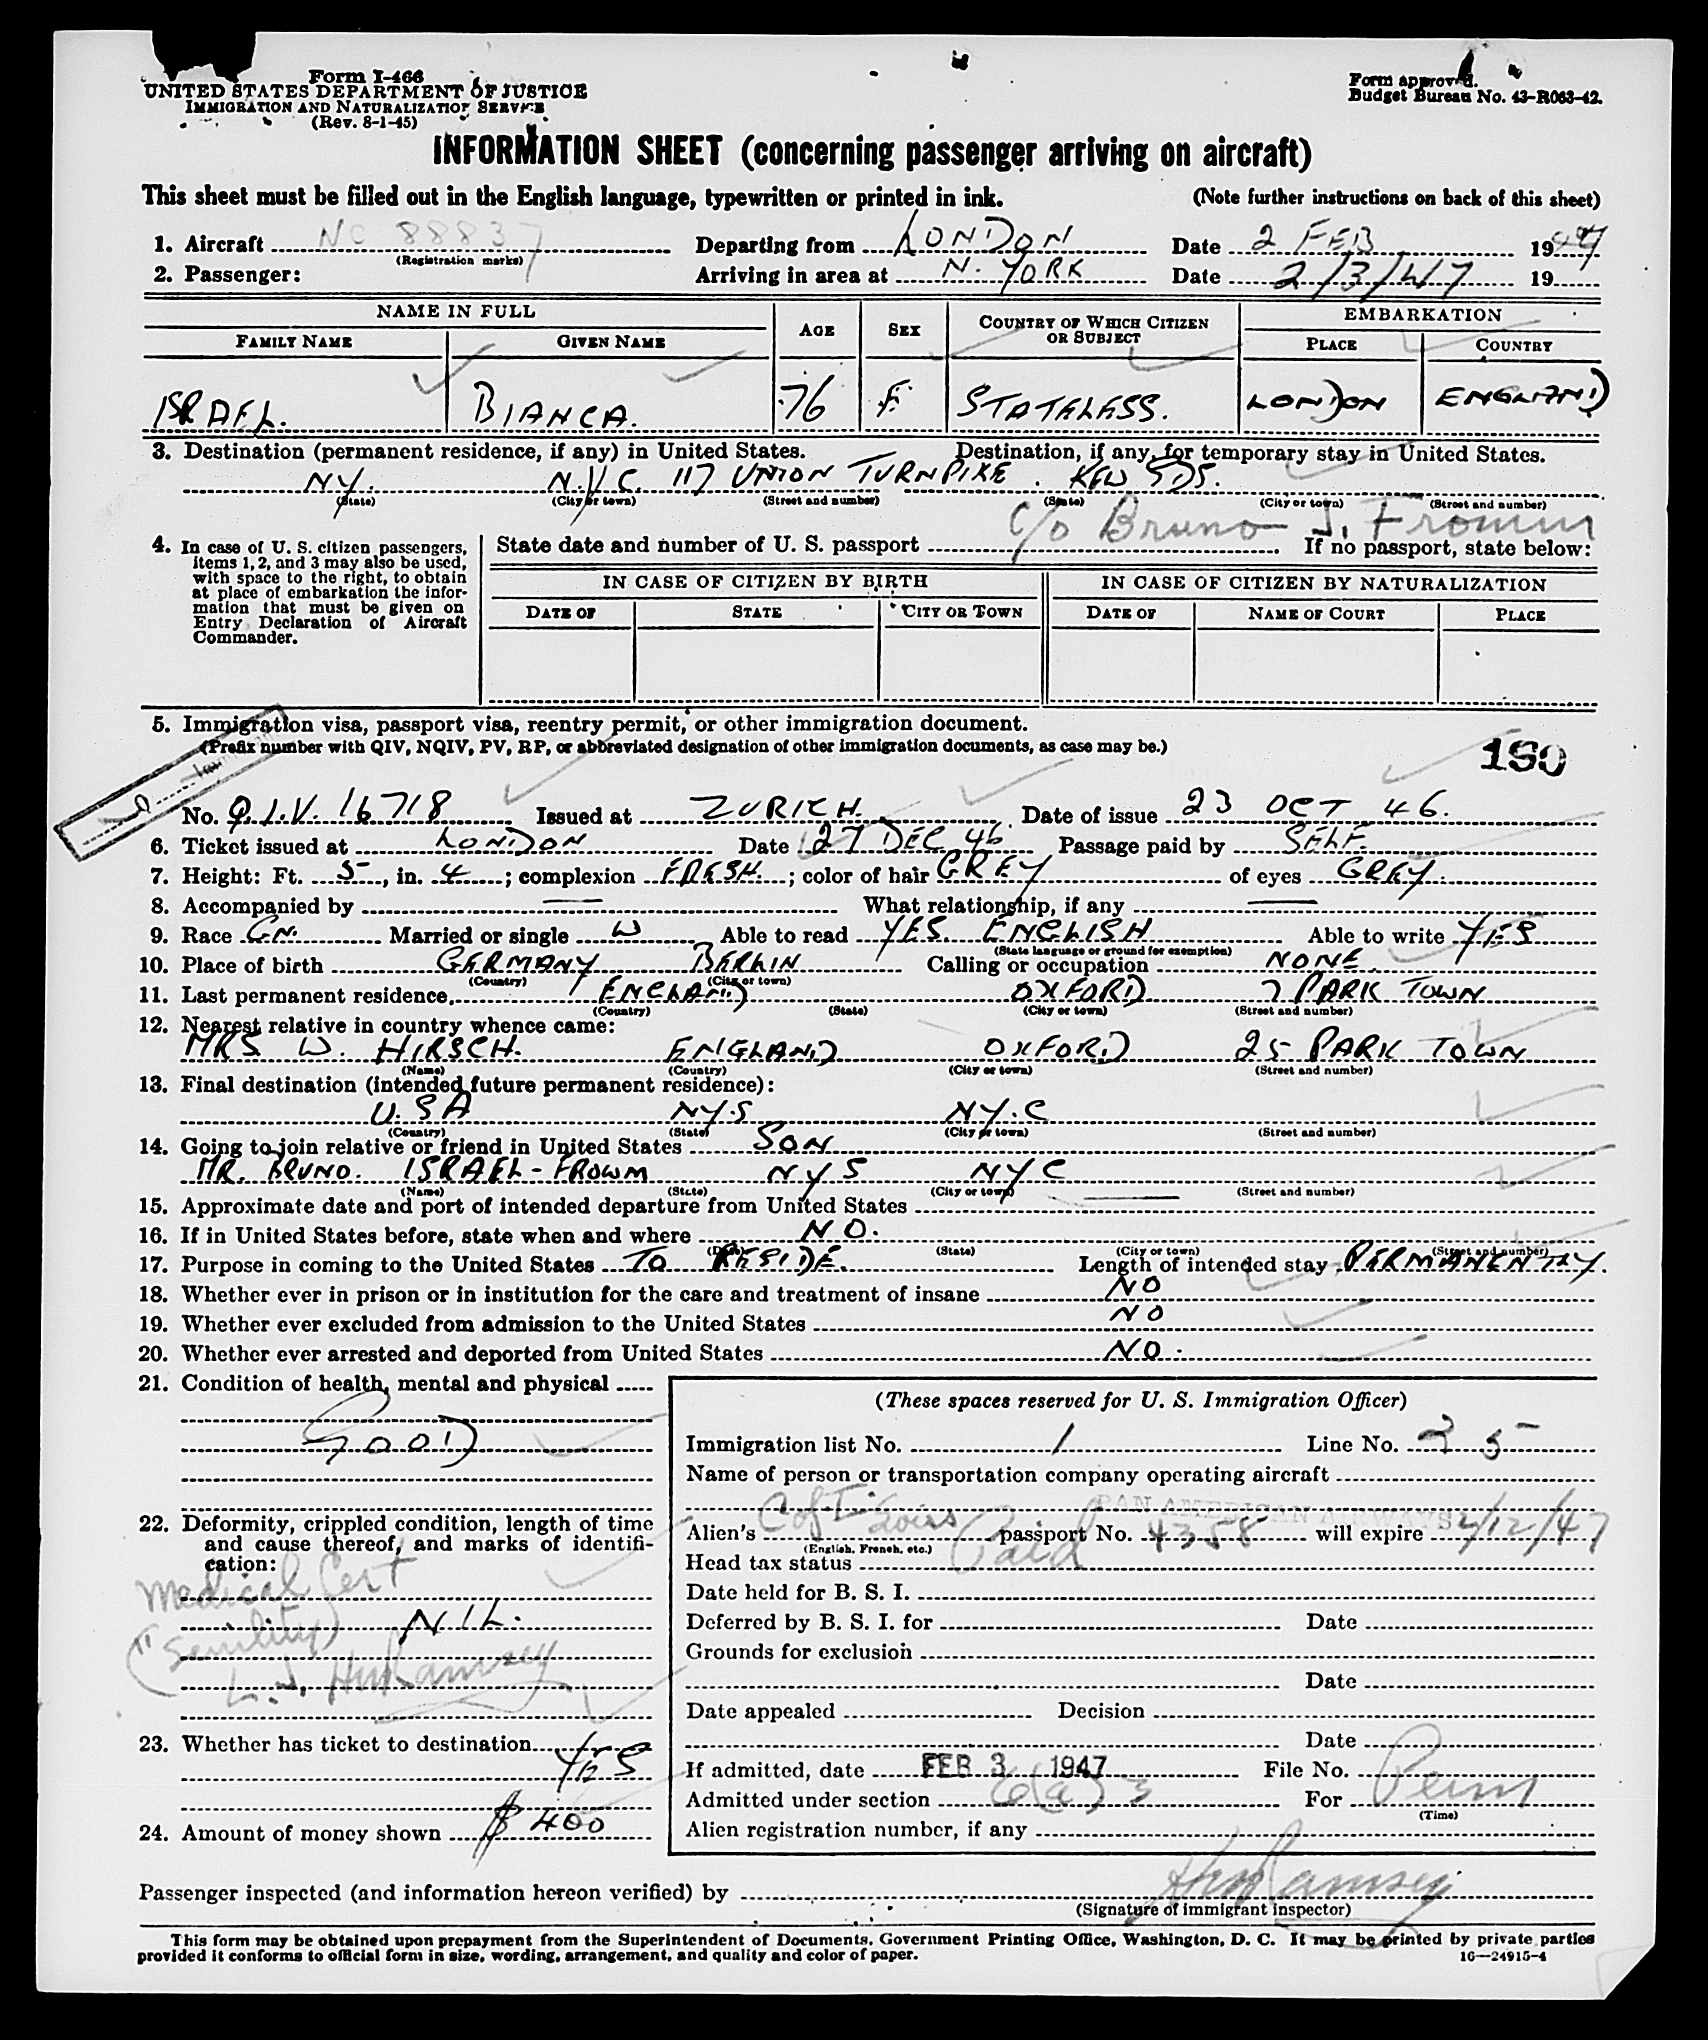 Form I-466
UNITED STATES DEPARTMENT OF JUSTICE
IMMIGRATION AND NATURALIZATION SERVICE
(Rev. 8-1-45)
Form approved.
Budget Bureau No. 43-R063-42.
INFORMATION SHEET (concerning passenger arriving on aircraft)
This sheet must be filled out in the English language, typewritten or printed in ink. (Note further instructions on back of this sheet)
1. Aircraft NC 88837 Departing from LONDON Date 2 FEB 1947
(Registration marks)
2. Passenger: Arriving in area at N. YORK Date 2/3/47 19
NAME IN FULL AGE SEX COUNTRY OF WHICH CITIZEN OR SUBJECT EMBARKATION
FAMILY NAME GIVEN NAME PLACE COUNTRY
ISRAEL. BIANCA. 76 F. STATELESS. LONDON ENGLAND
3. Destination (permanent residence, if any) in United States. Destination, if any, for temporary stay in United States.
NY. N.Y.C. 117 UNION TURNPIKE. KEW GDS.
(State) (City or town) (Street and number) (State) (City or town) (Street and number)
c/o Bruno I. Fromm
4. In case of U. S. citizen passengers, items 1, 2, and 3 may also be used, with space to the right, to obtain at place of embarkation the information that must be given on Entry Declaration of Aircraft Commander.
State date and number of U. S. passport If no passport, state below:
IN CASE OF CITIZEN BY BIRTH IN CASE OF CITIZEN BY NATURALIZATION
DATE OF STATE CITY OR TOWN DATE OF NAME OF COURT PLACE
5. Immigration visa, passport visa, reentry permit, or other immigration document.
(Prefix number with QIV, NQIV, PV, RP, or abbreviated designation of other immigration documents, as case may be.)
180
No. Q.I.V. 16718 Issued at ZURICH. Date of issue 23 OCT 46.
6. Ticket issued at LONDON Date 27 DEC 46 Passage paid by SELF.
7. Height: Ft. 5, in. 4; complexion FRESH.; color of hair GREY of eyes GREY.
8. Accompanied by — What relationship, if any —
9. Race GN. Married or single W Able to read YES. ENGLISH Able to write YES
(State language or ground for exemption)
10. Place of birth GERMANY BERLIN Calling or occupation NONE.
(Country) (City or town)
11. Last permanent residence ENGLAND OXFORD 7 PARK TOWN
(Country) (State) (City or town) (Street and number)
12. Nearest relative in country whence came:
MRS W. HIRSCH. ENGLAND OXFORD 25 PARK TOWN
(Name) (Country) (City or town) (Street and number)
13. Final destination (intended future permanent residence):
U.S.A NY.S NY.C
(Country) (State) (City or town) (Street and number)
14. Going to join relative or friend in United States SON
MR. BRUNO. ISRAEL-FROWM NYS NYC
(Name) (State) (City or town) (Street and number)
15. Approximate date and port of intended departure from United States —
16. If in United States before, state when and where NO.
(Date) (State) (City or town) (Street and number)
17. Purpose in coming to the United States TO RESIDE. Length of intended stay PERMANENTLY.
18. Whether ever in prison or in institution for the care and treatment of insane NO
19. Whether ever excluded from admission to the United States NO
20. Whether ever arrested and deported from United States NO.
21. Condition of health, mental and physical
GOOD
22. Deformity, crippled condition, length of time and cause thereof, and marks of identification:
Medical Cert
NIL.
("Senility)
Ramsey
23. Whether has ticket to destination YES
24. Amount of money shown $ 400
(These spaces reserved for U. S. Immigration Officer)
Immigration list No. 1 Line No. 35
Name of person or transportation company operating aircraft
PAN AMERICAN AIRWAYS
Alien's C of I Swiss passport No. 4358 will expire /12/47
(English, French, etc.)
Head tax status Paid
Date held for B. S. I.
Deferred by B. S. I. for Date
Grounds for exclusion
Date
Date appealed Decision
Date
If admitted, date FEB 3 1947 File No.
Admitted under section 6(a)3 For Perm
(Time)
Alien registration number, if any
Passenger inspected (and information hereon verified) by Ramsey
(Signature of immigrant inspector)
This form may be obtained upon prepayment from the Superintendent of Documents, Government Printing Office, Washington, D. C. It may be printed by private parties
provided it conforms to official form in size, wording, arrangement, and quality and color of paper. 16—24915-4